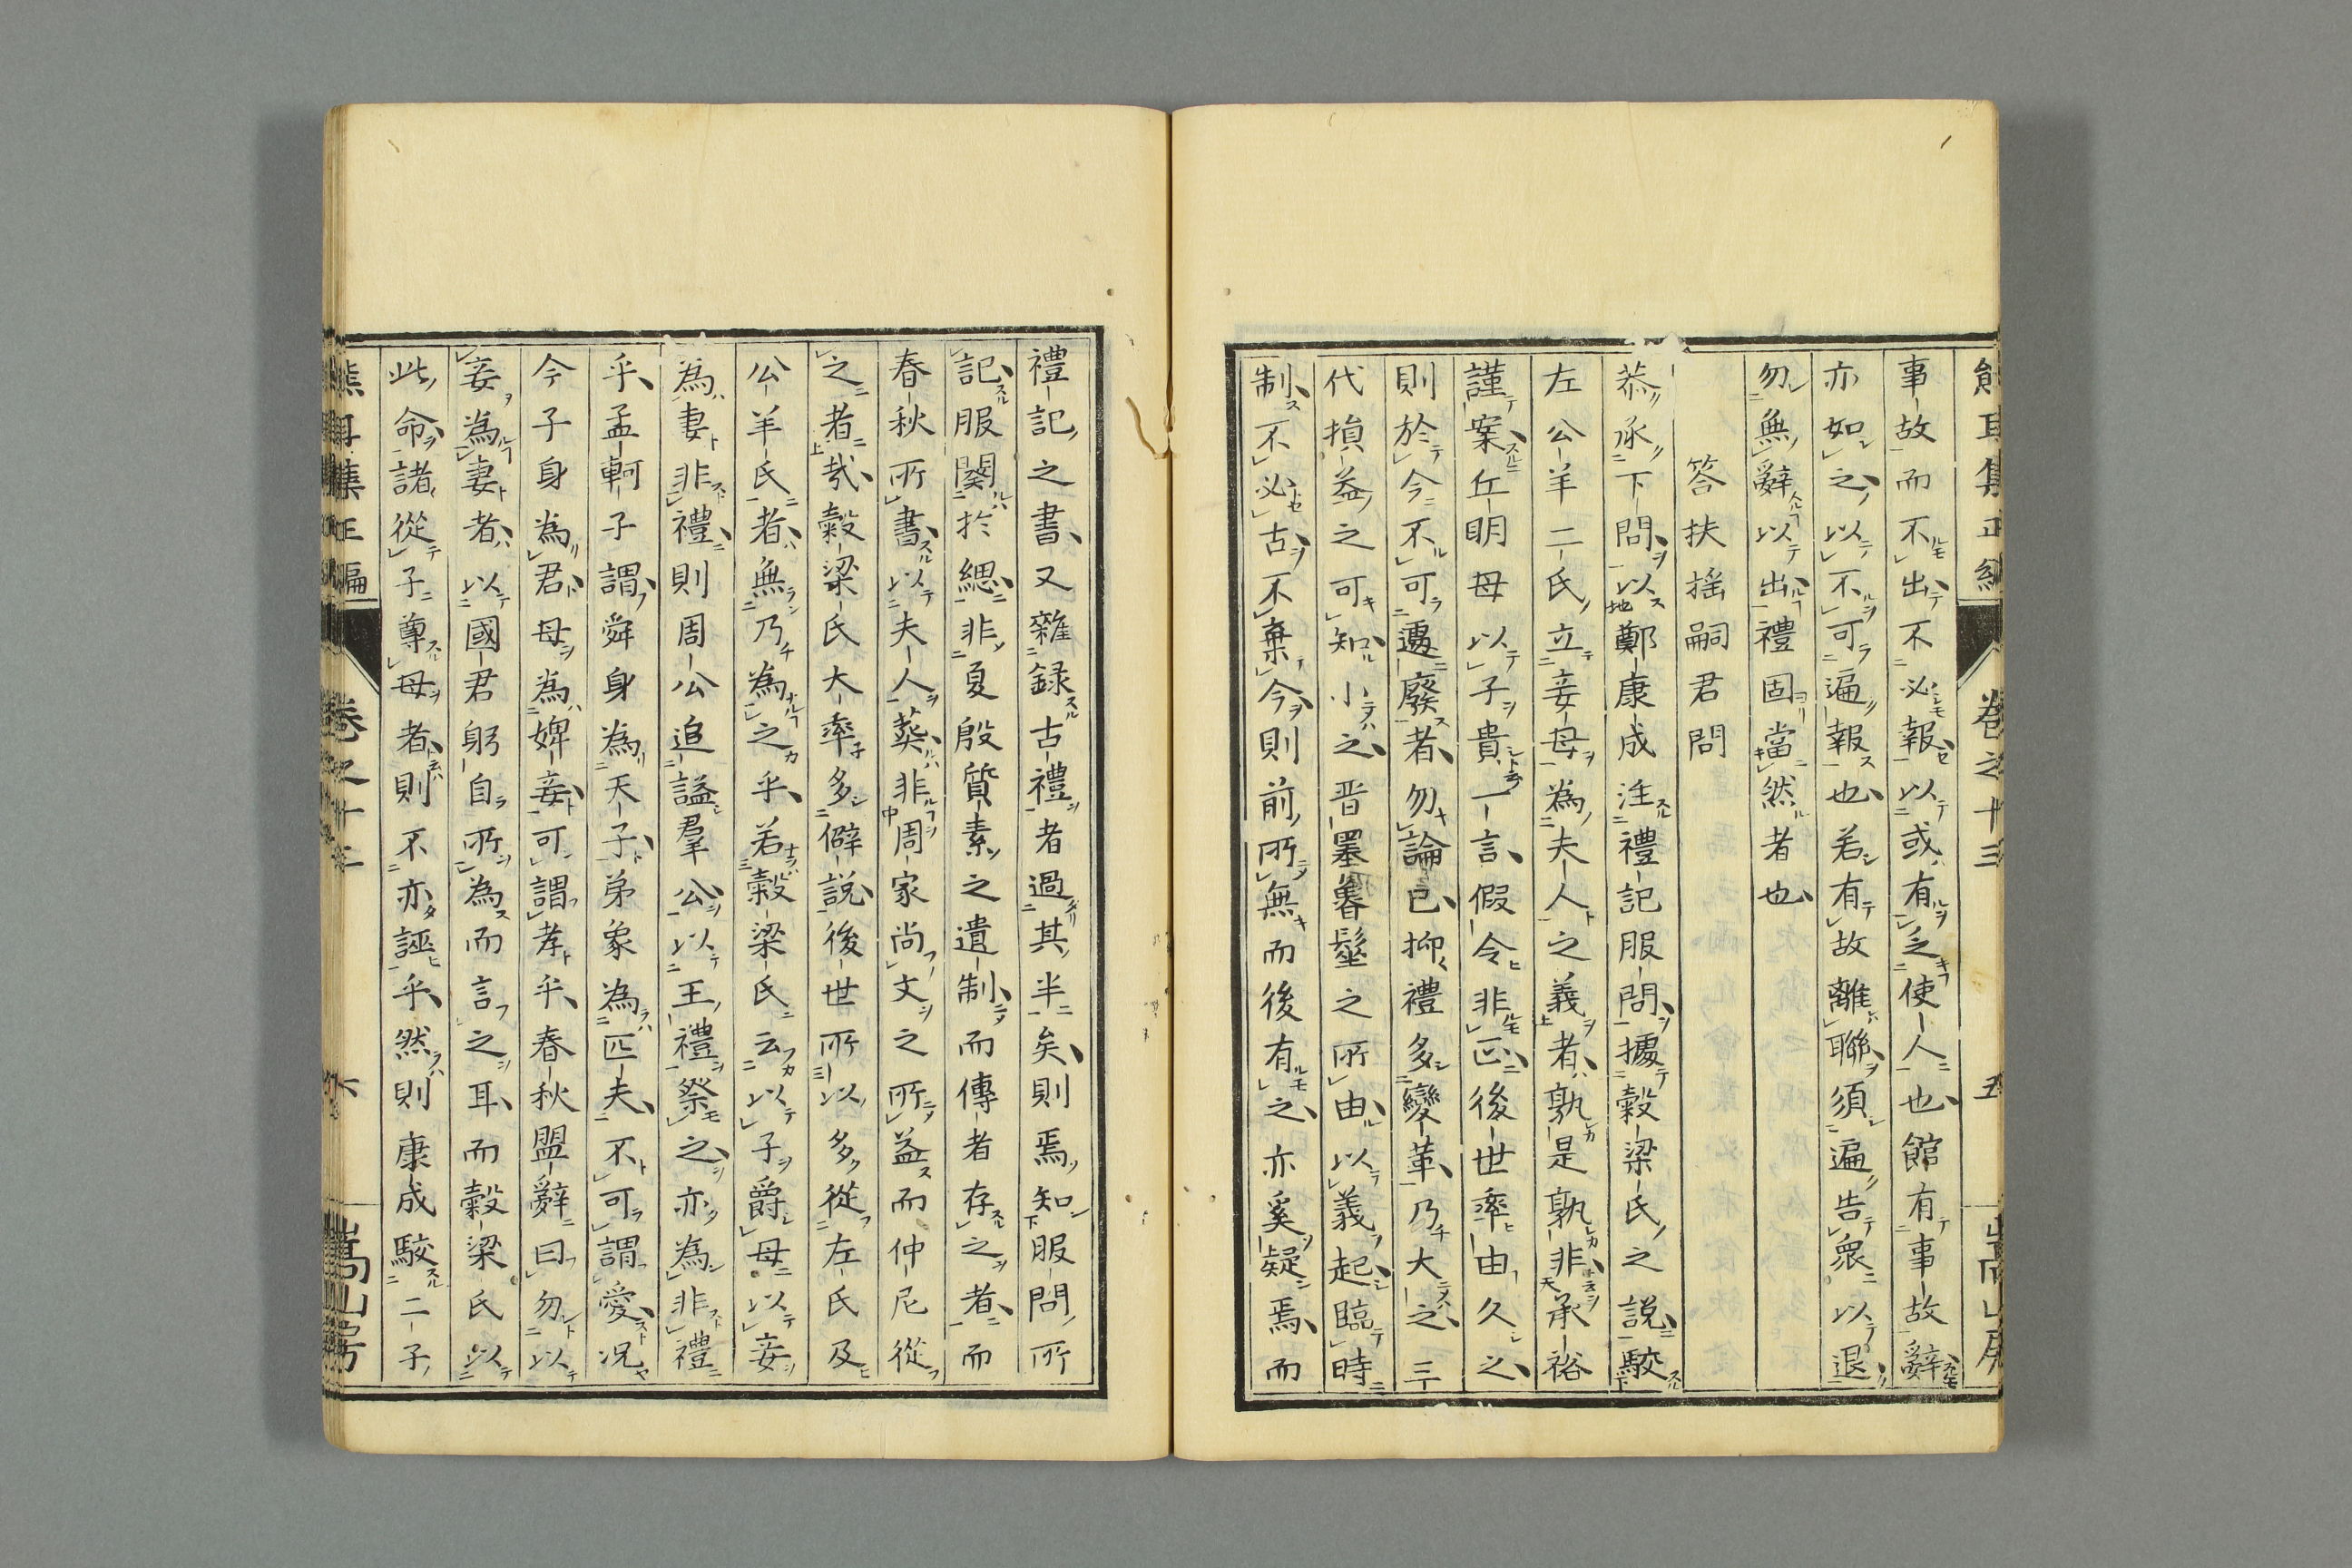 熊耳集正編 卷之十三 五 嵩山房
事故而不出不必報以或有乏使人也館有事故辭
亦如之以不可遍報也若有故離聯須遍告眾以退
勿無辭以出禮固當然者也
答扶搖嗣君問
恭承下問以鄭康成注禮記服問據穀梁氏之説駮
左公羊二氏立妾母為夫人之義者孰是孰非承裕
謹案丘明母以子貴一言假令非匹後世率由久之
則於今不可遷廢者勿論已抑禮多變革乃大之三
代損益之可知小之晋墨魯髽之所由以義起臨時
制不必古不棄今則前所無而後有之亦奚疑焉而
禮記之書又雜録古禮者過其半矣則焉知服問所
記服闋於緦非夏殷質素之遺制而傳者存之者而
春秋所書以夫人葬非周家尚文之所益而仲尼從
之者哉穀梁氏大率多僻説後世所以多從左氏及
公羊氏者無乃為之乎若穀梁氏云以子爵母以妾
為妻非禮則周公追謚羣公以王禮祭之亦為非禮
乎孟軻子謂舜身為天子弟象為匹夫不可謂愛況
今子身為君母為婢妾可謂孝乎春秋盟辭曰勿以
妾為妻者以國君躬自所為而言之耳而穀梁氏以
此命諸從子尊母者則不亦誣乎然則康成駮二子
熊耳集正編 卷之十三 六 嵩山房